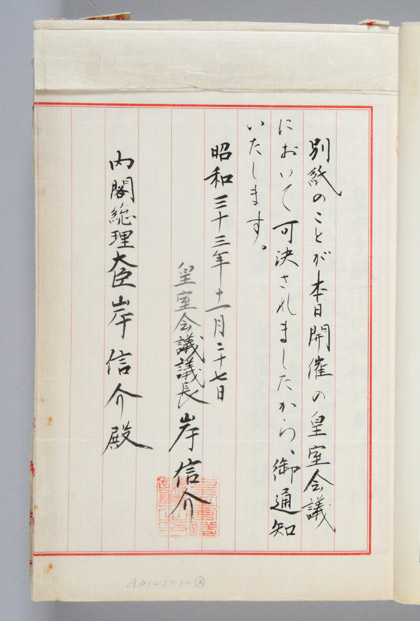 別紙のことが本日開催の皇室会議
において可決されましたから、御通知
いたします。
昭和三十三年十一月二十七日
皇室会議議長 岸信介
内閣総理大臣 岸信介殿